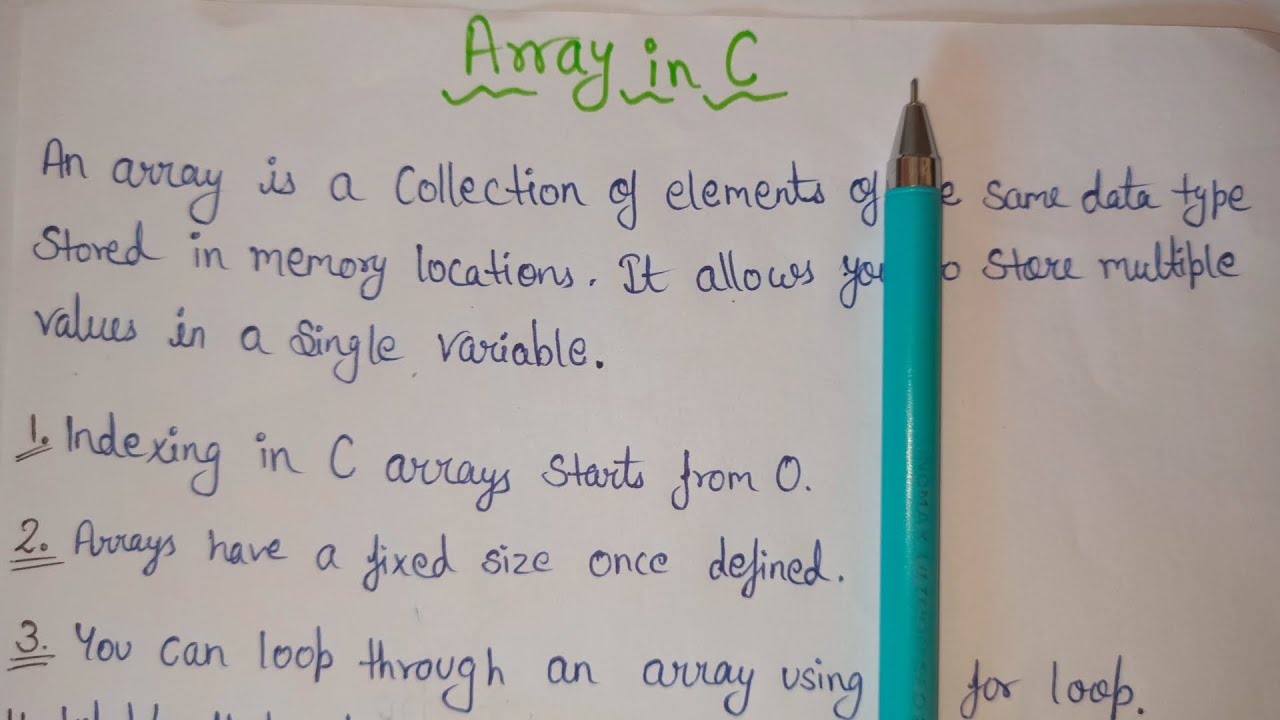 Array in C
An array is a Collection of elements of same data type
Stored in memory locations. It allows you Store multiple
values in a Single variable.
1. Indexing in C arrays Starts from 0.
2. Arrays have a fixed size once defined.
3. You can loop through an array using for loop.